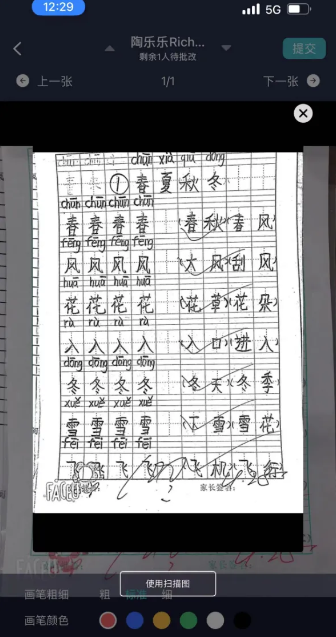 12:29
5G
陶乐乐Rich...
剩余1人待批改
提交
上一张
1/1
下一张
chūn xià qiū dōng
① 春 夏 秋 冬
chūn chūn chūn chūn
春 春 春 春 (春 秋)(春 风)
fēng fēng fēng fēng
风 风 风 风 (大 风)(刮 风)
huā huā huā huā
花 花 花 花 (花 草)(花 朵)
rù rù rù rù
入 入 入 入 (入 口)(进 入)
dōng dōng dōng dōng
冬 冬 冬 冬 (冬 天)(冬 季)
xuě xuě xuě xuě
雪 雪 雪 雪 (下 雪)(雪 花)
fēi fēi fēi fēi
飞 飞 飞 (飞 机)(飞 行)
家长签名:
使用扫描图
画笔粗细
粗
标准
细
画笔颜色